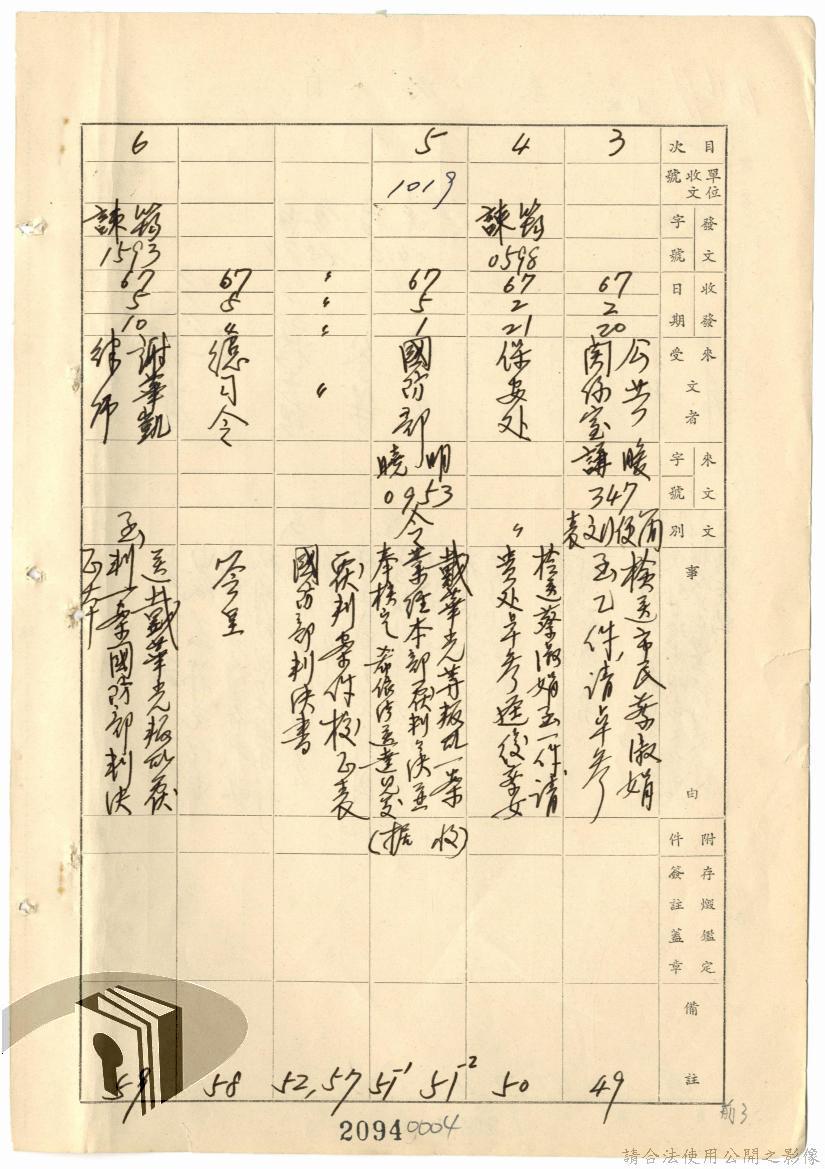 目次
單位收文號
發文字號
收發日期
來受文者
來文字號
文別
事由
附件
存燬鑑定簽註蓋章
備註
3
67
2
20
公共關係室
謙暖
347
簡便行文列表
檢送市民蔡淑娟
函乙件,請卓參
49
4
諫筠
0598
67
2
21
保安处
〃
檢送蔡淑娟函一件請
貴处卓參逕復蔡女
50
5
1019
67
5
1
國防部
曉明
0953
令
戴華光等叛乱一案
業經本部覆判決並
奉核定希依法送達見复
(据收)
51-1 51-2
〃
〃
〃
〃
覆判案件校正表
國防部判決書
52,57
67
5
〃
總司令
簽呈
58
6
諫筠
1593
67
5
10
謝華凱
律师
函
送戴華光叛乱覆
判一案國防部判決
正本
59
2094
0004
前3
請合法使用公開之影像